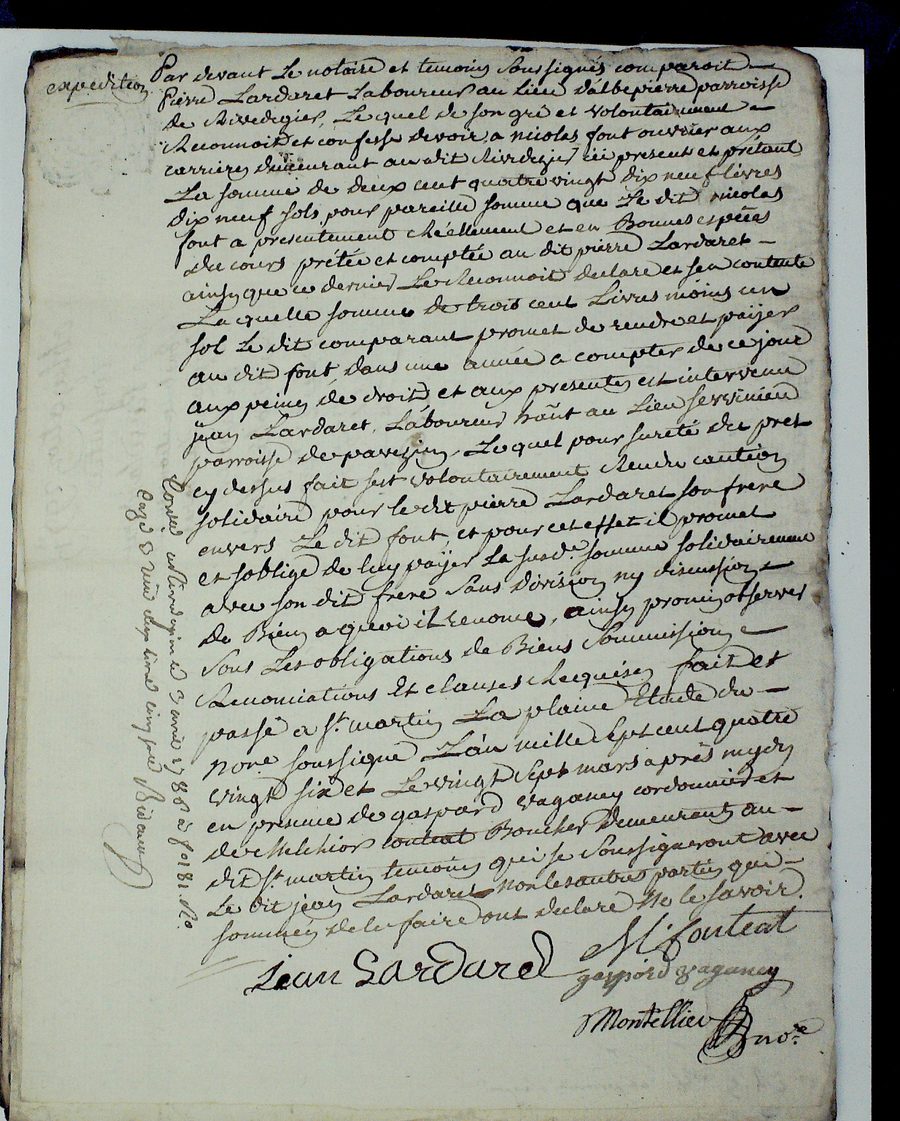 expedition
Par devant Le notaire et temoins Soussignés comparoit
Pierre Lardaret Laboureur au Lieu d'albepierre parroisse
de Rivedegier, Le quel de son gré et volontairement
Reconnoit et confesse devoir a nicolas font ouvrier aux
carrieres demeurant au dit Rivedegier ici present et prétant
La somme de deux cent quatre vingt dix neuf livres
dix neuf sols pour pareille somme que Le dit nicolas
font a presentement Réellement et en Bonnes espéces
du cours prétée et comptée au dit pierre Lardaret
ainsy que ce dernier Le Reconnoit declare et s'en contente
La quelle somme de trois cent Livres moins un
sol Le dit comparant promet de rendre et païer
au dit font dans une année a compter de ce jour
aux peines de droit et aux presentes est intervenu
jean Lardaret, Laboureur hãnt au Lieu
parroisse de pavezin, Lequel pour sureté du pret
cy dessus fait s'est volontairement Rendu caution
solidaire pour le dit pierre Lardaret son frere
envers Le dit font, et pour cet effet il promet
et s'oblige de luy païer La susd.e somme solidairement
avec son dit frere Sans division ny discussion
de Biens a quoi il Renonce, ainsy promis observer
Sous Les obligations de Biens Soummissions
Renonciations Et clauses Requises, fait et
passé a St. martin La plaine Etude du
nore soussigné L'an mille sept cent quatre
vingt six et Le vingt sept mars après mydy
en presence de gaspard vaganey cordonnier et
de Melchior fonteat Boucher demeurant au
dit St. martin temoins qui se soussigneront avec
Le dit jean Lardaret non les autres parties qui
sommées de le faire ont declaré Ne le savoir.
jean Lardaret
M fonteat
gaspard vaganey
Montellier nore
Controllé a Rivedegier le 3 avril 1786 fo 181 Ro
Case 8 Recu deux livres cinq sols